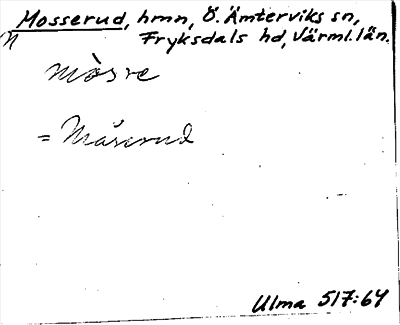 Mosserud, hmn, Ö. Ämterviks sn,
Fryksdals hd, Värml. län.
mòsre
= Måserud
Ulma 517:64